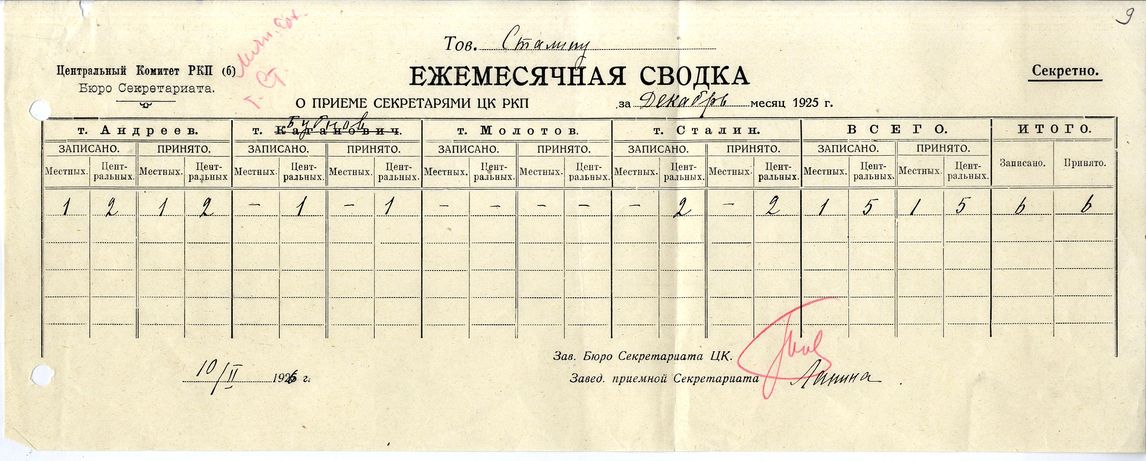 9
Тов. Сталину
Центральный Комитет РКП (б)
Бюро Секретариата.
ЕЖЕМЕСЯЧНАЯ СВОДКА
Секретно.
О ПРИЕМЕ СЕКРЕТАРЯМИ ЦК РКП за Декабрь месяц 1925 г.
т. Андреев. т. Каганович. Бубнов т. Молотов. т. Сталин. ВСЕГО. ИТОГО.
ЗАПИСАНО. ПРИНЯТО. ЗАПИСАНО. ПРИНЯТО. ЗАПИСАНО. ПРИНЯТО. ЗАПИСАНО. ПРИНЯТО. ЗАПИСАНО. ПРИНЯТО. Записано. Принято.
Местных. Центральных. Местных. Центральных. Местных. Центральных. Местных. Центральных. Местных. Центральных. Местных. Центральных. Местных. Центральных. Местных. Центральных. Местных. Центральных. Местных. Центральных.
1 2 1 2 – 1 – 1 – – – – – 2 – 2 1 5 1 5 6 6
Зав. Бюро Секретариата ЦК.
10/II 1926 г. Завед. приемной Секретариата Лапина